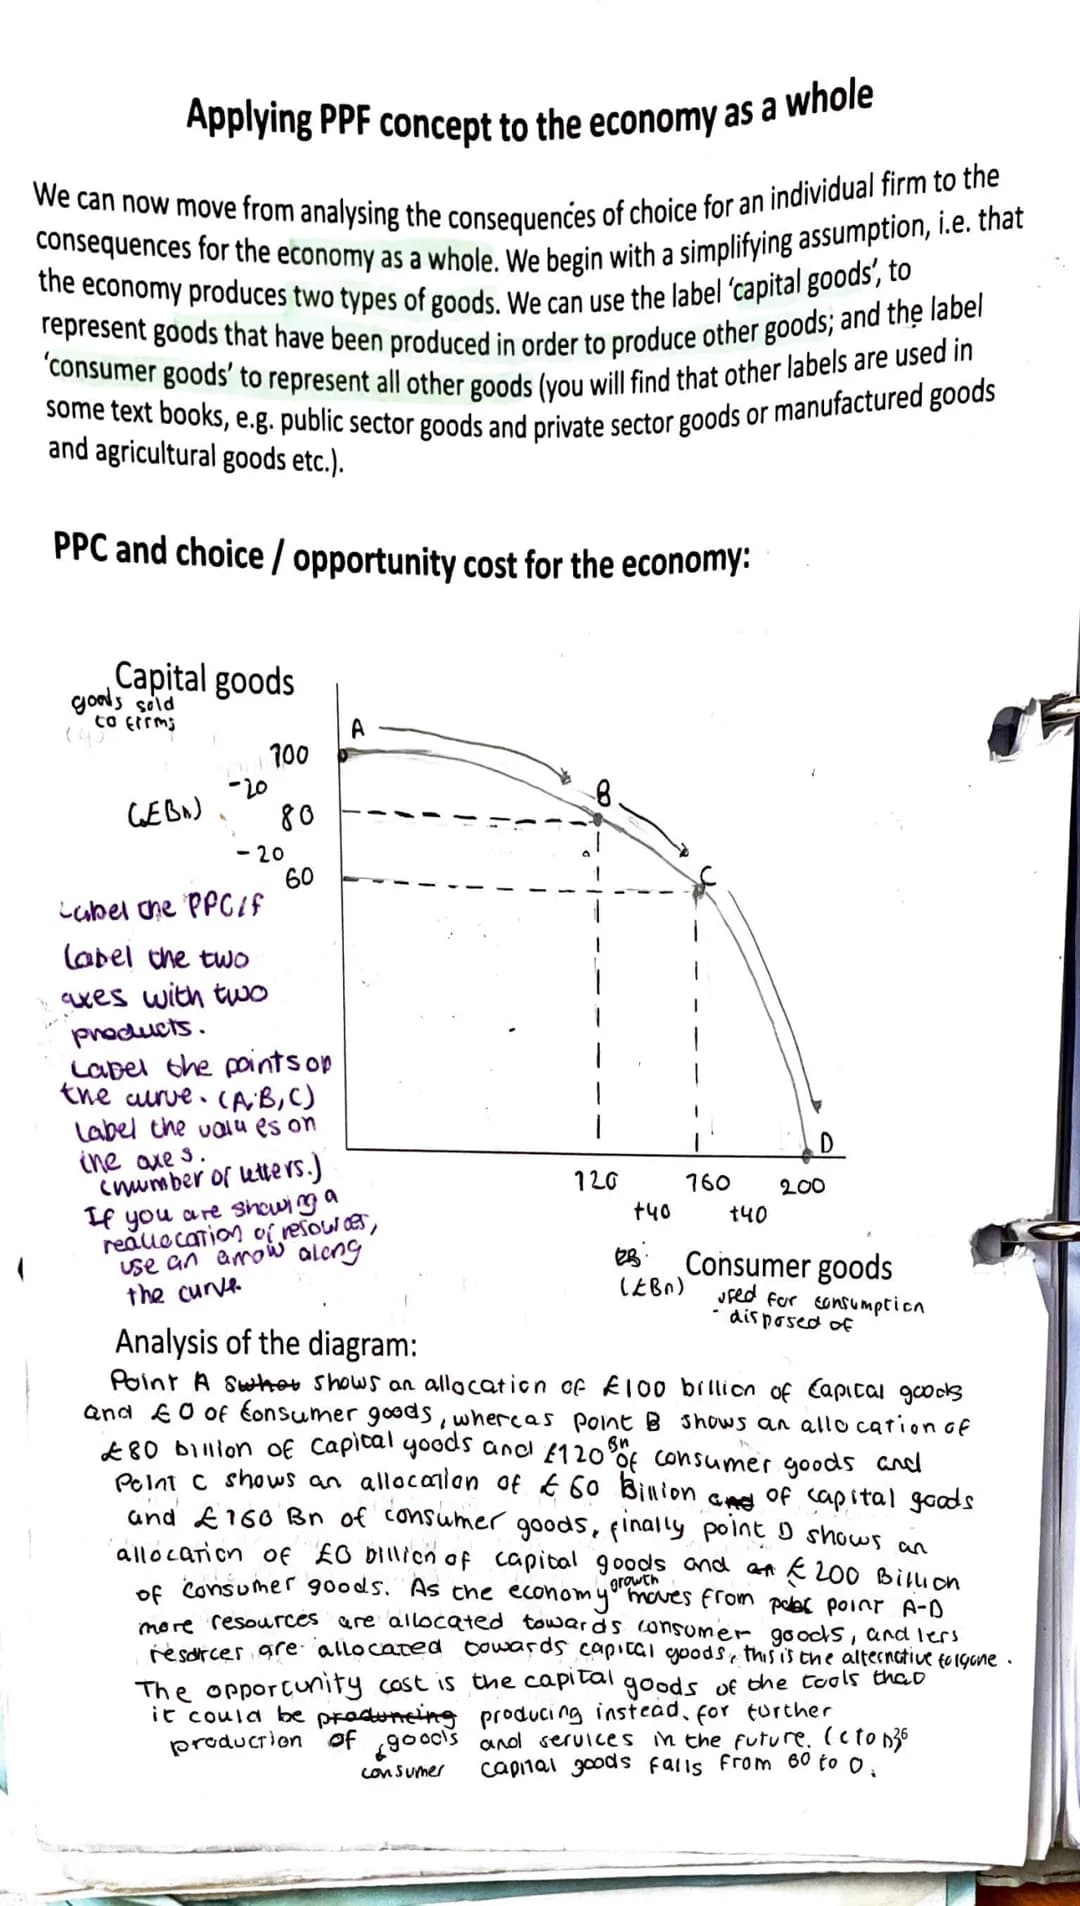 Applying PPF concept to the economy as a whole
We can now move from analysing the consequences of choice for an individual firm to the
consequences for the economy as a whole. We begin with a simplifying assumption, i.e. that
the economy produces two types of goods. We can use the label 'capital goods', to
represent goods that have been produced in order to produce other goods; and the label
'consumer goods' to represent all other goods (you will find that other labels are used in
some text books, e.g. public sector goods and private sector goods or manufactured goods
and agricultural goods etc.).
PPC and choice / opportunity cost for the economy:
Capital goods
goods sold
to firms
A
100
-20
(£Bn)
80
B
-20
60
C
Label the PPC/f
label the two
axes with two
products.
Label the points on
the curve. (A,B,C)
Label the values on
the axes.
(number or letters.)
If you are showing a
reallocation of resources,
use an arrow along
the curve.
D
120
160
200
+40
+40
(£Bn)
Consumer goods
used for consumption
- disposed of
Analysis of the diagram:
Point A shows an allocation of £100 billion of capital goods
and £0 of consumer goods, whereas point B shows an allocation of
£80 billion of capital goods and £120 Bn of consumer goods and
Point C shows an allocation of £60 Billion and of capital goods
and £160 Bn of consumer goods, finally point D shows an
allocation of £0 billion of capital goods and an £200 Billion
of consumer goods. As the economy growth moves from point A-D
more resources are allocated towards consumer goods, and less
resources are allocated towards capital goods, this is the alternative forgone.
The opportunity cost is the capital goods of the tools that
it could be producing producing instead, for further
production of consumer goods and services in the future. (C to D
capital goods falls from 60 to 0.